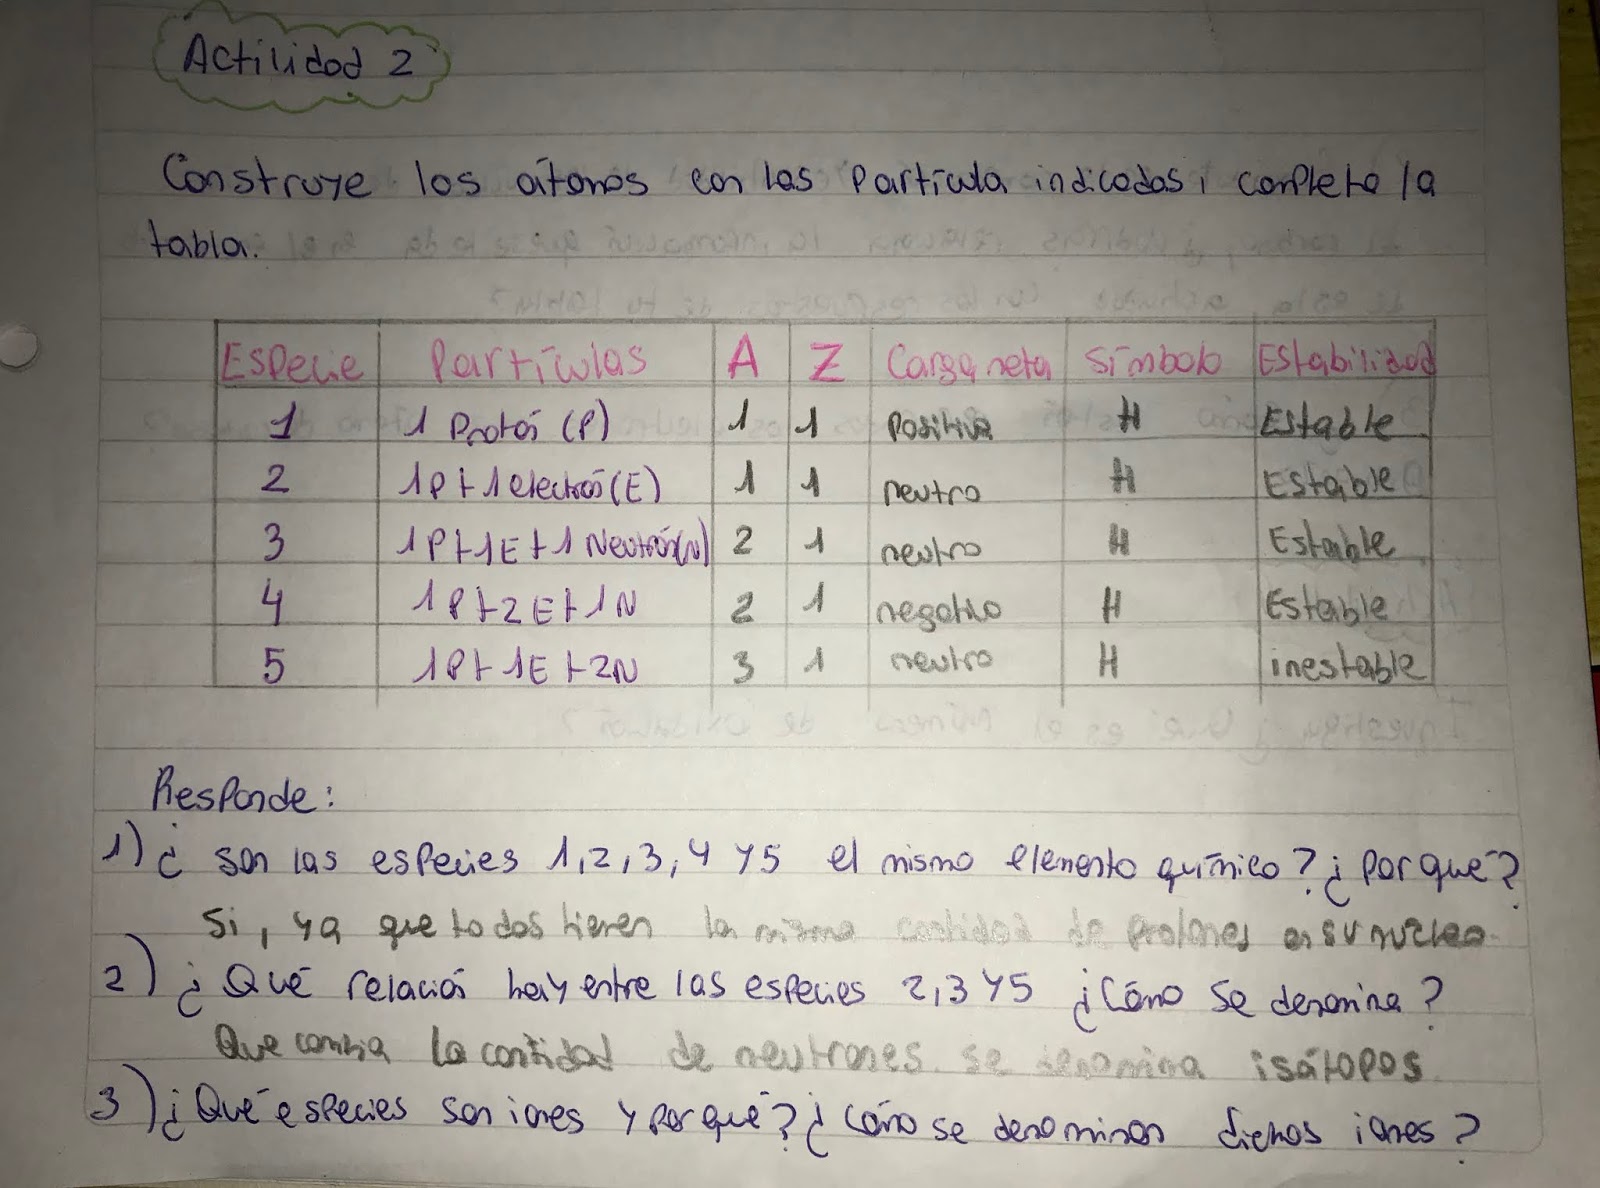 Actilidad 2
Construye los átomos con las Partícula indicadas, completa la
tabla.
Especie Partículas A Z Carga neta Símbolo Estabilidad
1 1 Protón (P) 1 1 Positiva H Estable
2 1P+1electrón(E) 1 1 neutro H Estable
3 1P+1E+1Neutrón(N) 2 1 neutro H Estable
4 1P+2E+1N 2 1 negativo H Estable
5 1P+1E+2N 3 1 neutro H inestable
Responde:
1) ¿ son las especies 1,2,3,4 y5 el mismo elemento químico? ¿Por qué?
Si, ya que todos tienen la misma cantidad de protones en su nucleo
2) ¿Qué relación hay entre las especies 2,3 y5 ¿Cómo se denomina?
Que cambia la cantidad de neutrones. se denomina isótopos
3) ¿Qué especies son iones y por qué? ¿Cómo se denominan dichos iones?